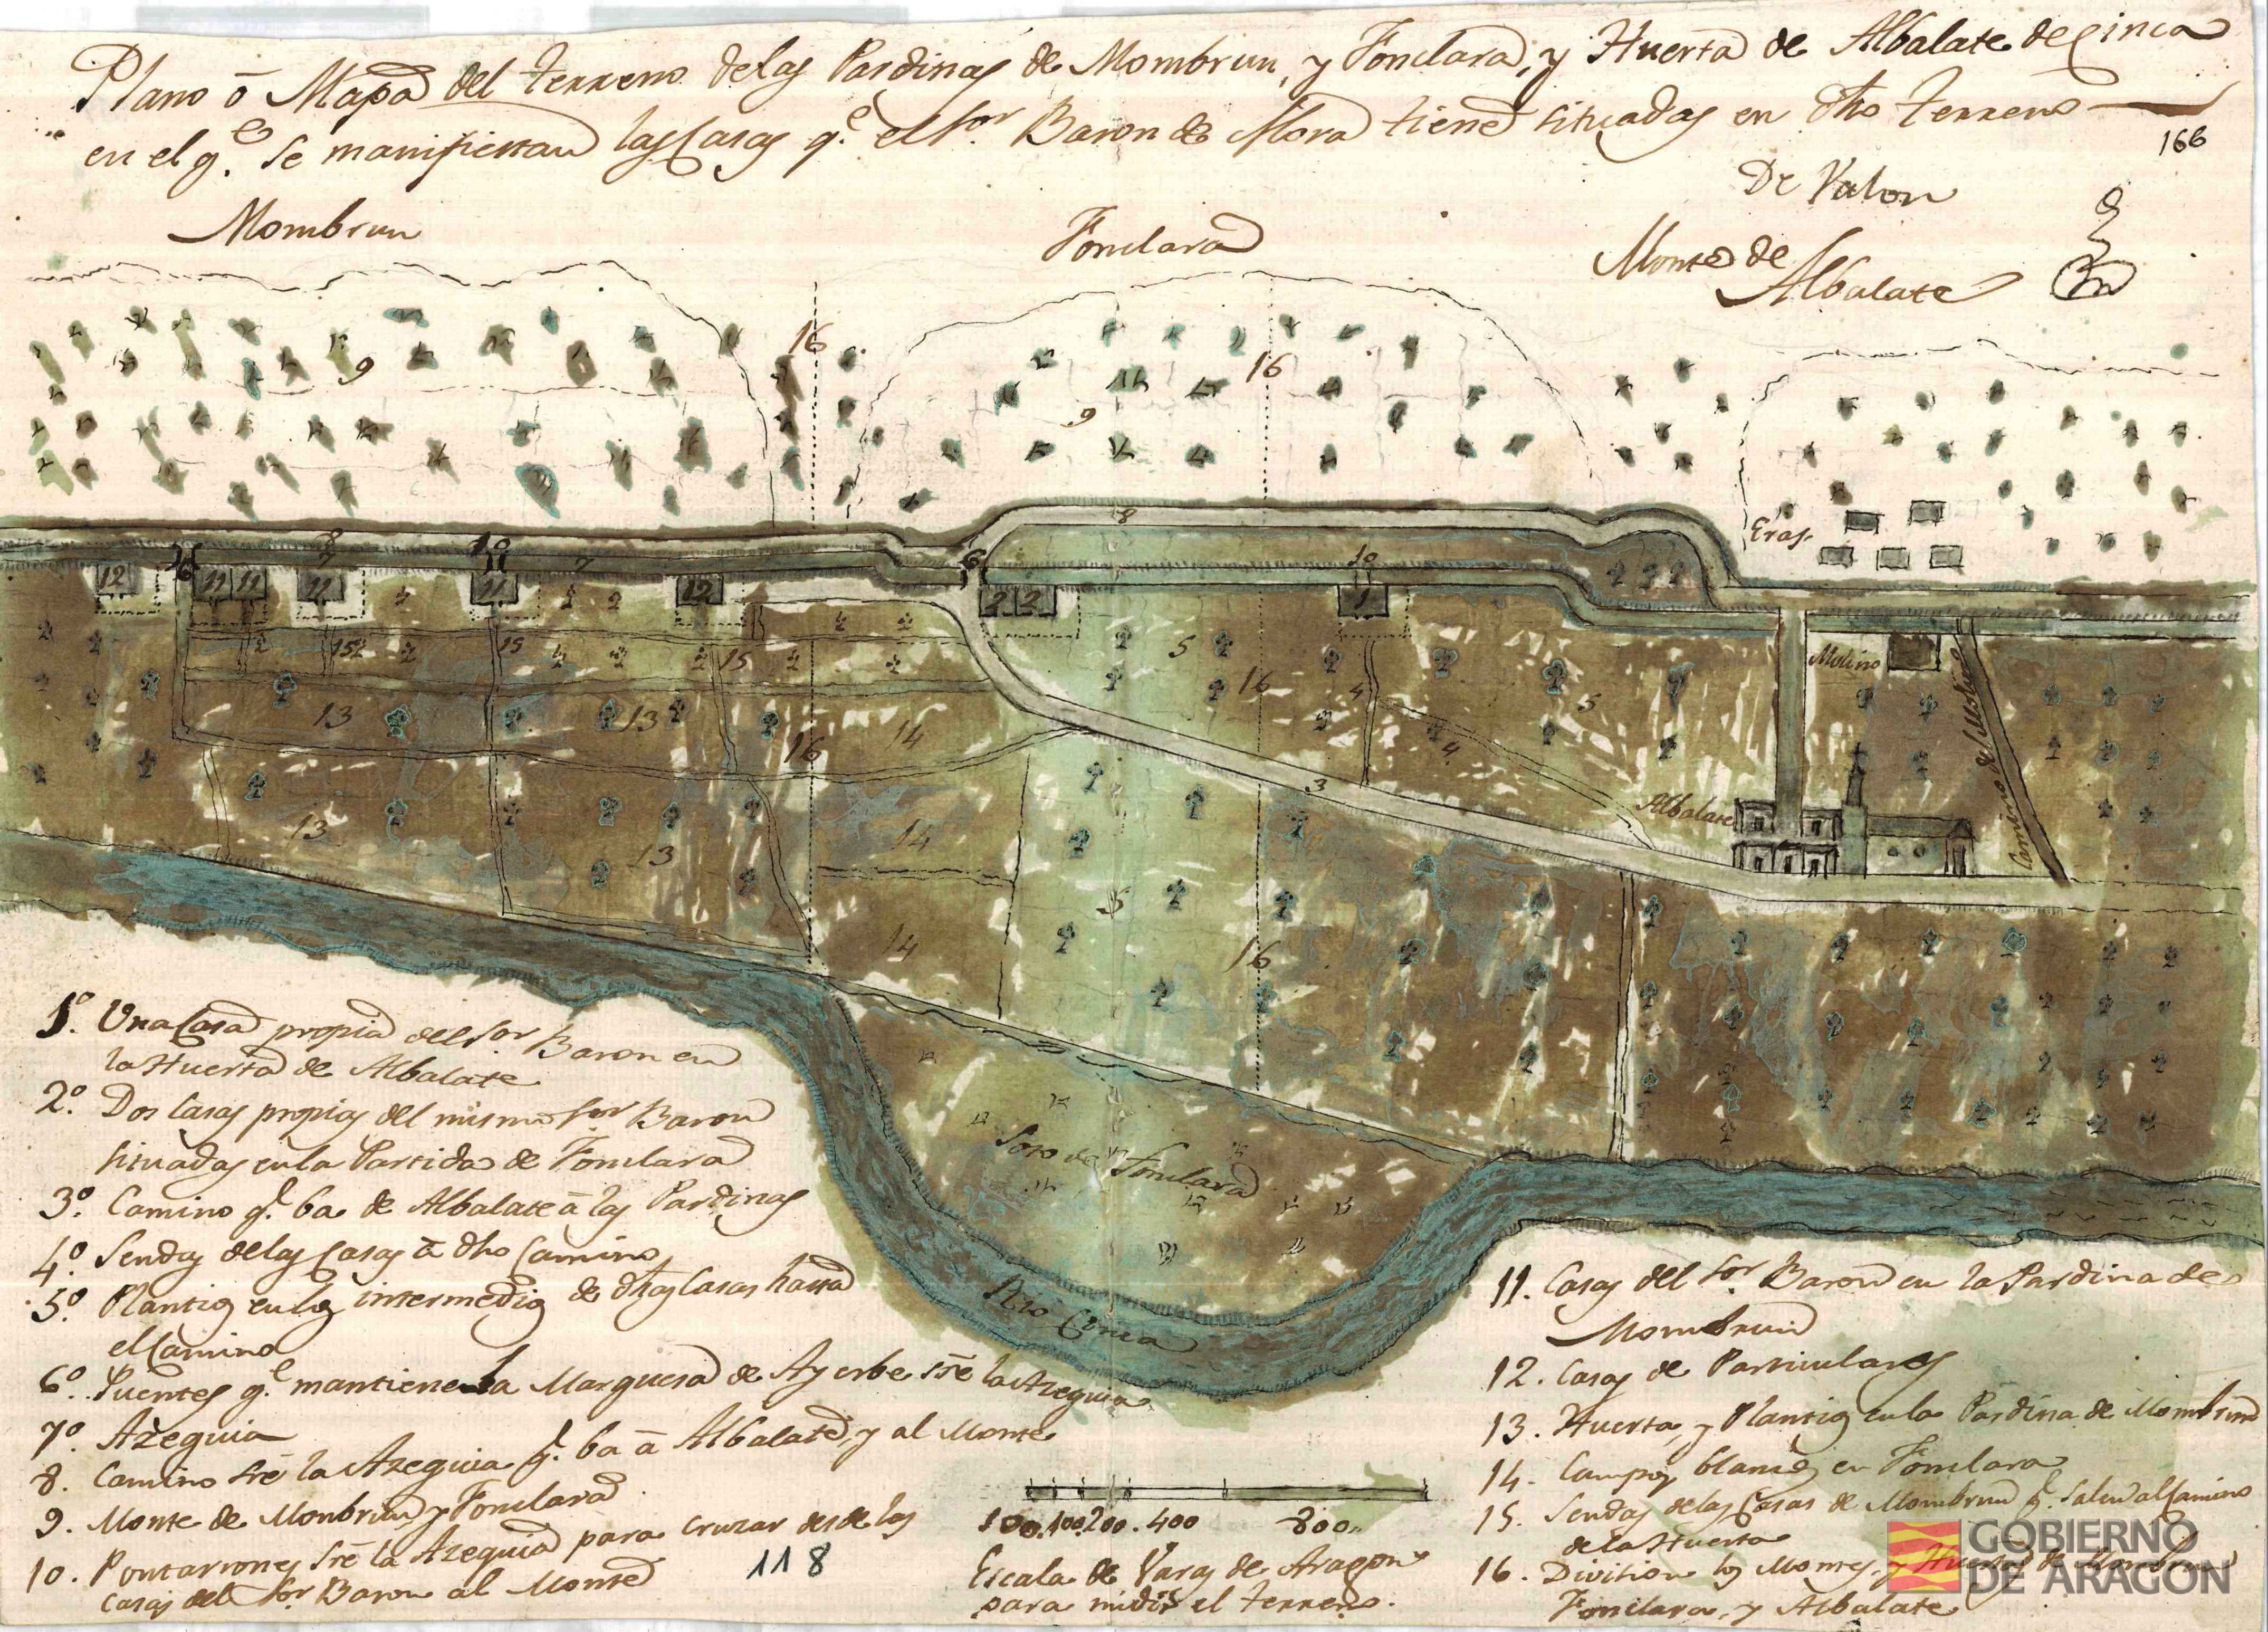 Plano ō Mapa del terreno delas Pardinas de Mombrun, y Fonclara, y Huerta de Albalate de Cinca
en el q.e se manifiestan las Casas q.e el Sor. Baron de Mora tiene situadas en dho terreno
166
De Valon
Mombrun
Fonclara
Monte de
Albalate
16
9
16
9
Eras.
8
8
10
7
6
6
10
12
11
11
11
11
12
2
2
1
15
15
15
5
16
4
5
Molino
Camino del Molino
13
13
16
14
4
3
Albalate
13
13
14
5
14
16
Soto de Fonclara
Rio Cinca
1º. Una Casa propia del Sor Baron en
la Huerta de Albalate
2º. Dos Casas propias del mismo Sor Baron
situadas en la Partida de Fonclara
3º. Camino q.e ba de Albalate ā las Pardinas
4º. Sendas delas Casas ā dho Camino
5º. Plantios en los intermedios de dhas Casas hasta
el Camino
6º. Puentes q.e mantiene la Marquesa de Ayerbe sre la Azequia
7º. Azequia
8. Camino sre la Azequia q.e ba ā Albalate, y al Monte
9. Monte de Monbrun, y Fonclara
10. Pontarrones sre la Azequia para cruzar desde las
casas del Sor Baron al Monte
118
100.100.200.400 800
Escala de Varas de Aragon
para midir el terreno.
11. Casas del Sor Baron en la Pardina de
Mombrun
12. Casas de Particulares
13. Huerta, y Plantios en la Pardina de Mombrun
14. Campos blancos en Fonclara
15. Sendas delas Casas de Mombrun q.e salen al Camino
de la Huerta
16. Division los Montes, y Huertas de Mombrun,
Fonclara, y Albalate
GOBIERNO
DE ARAGON